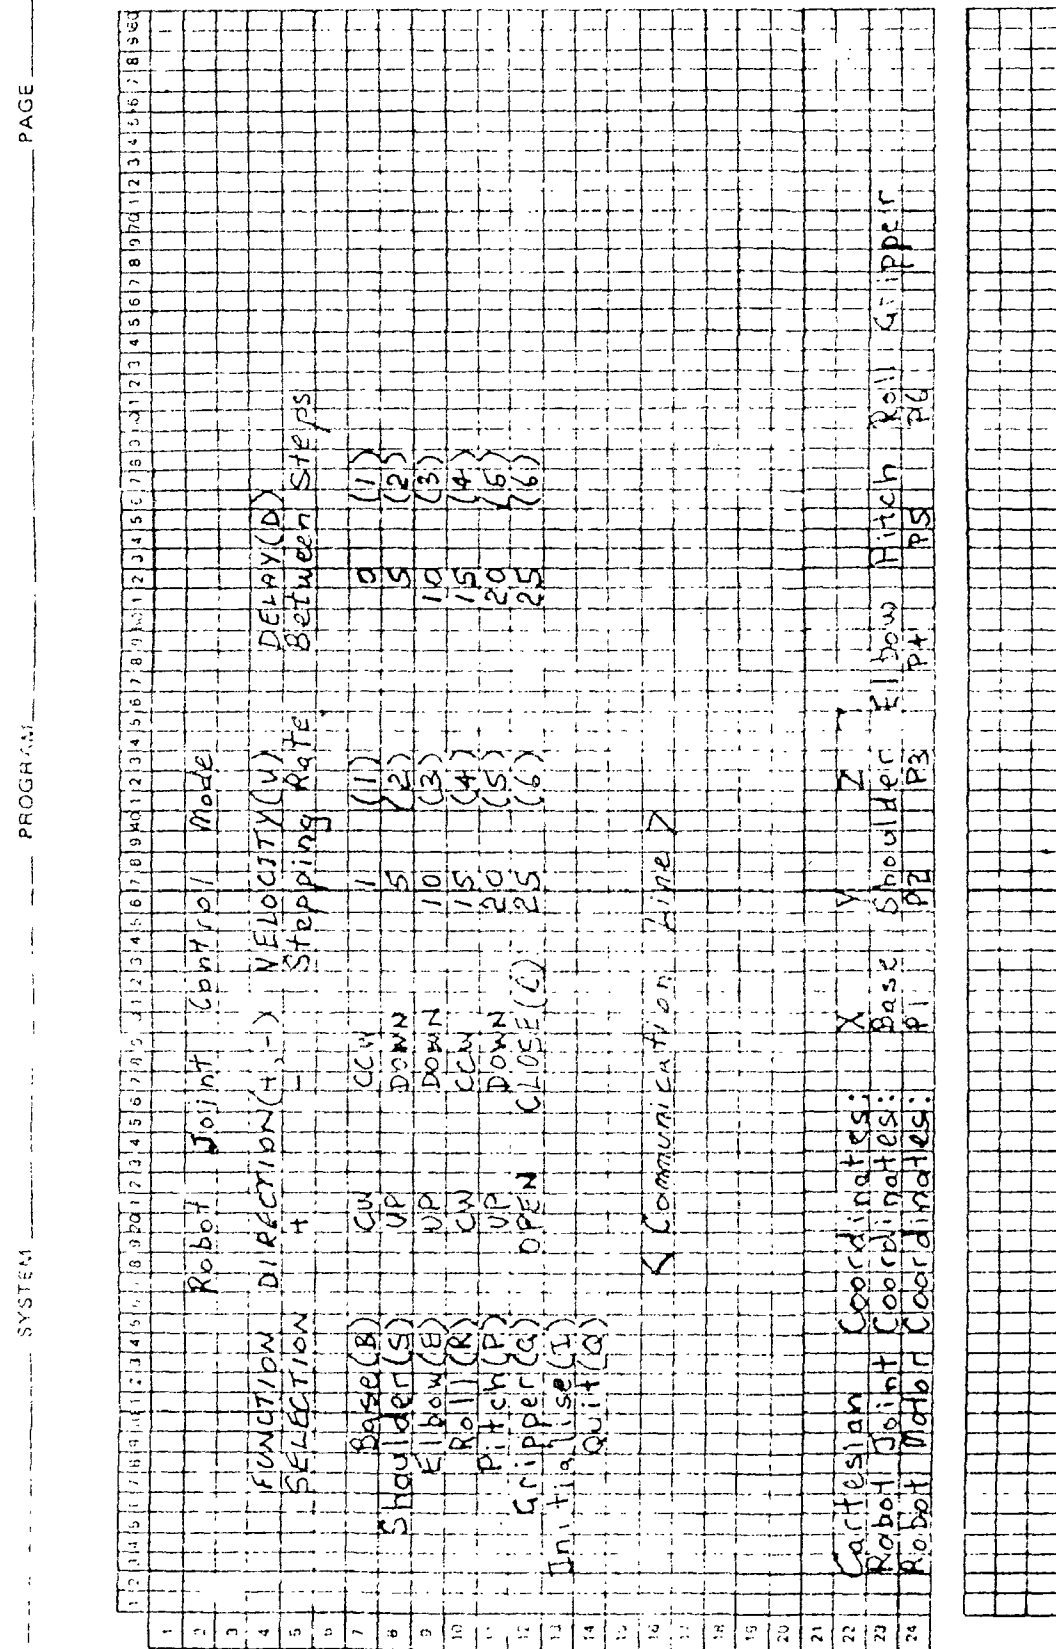 SYSTEM PROGRAM PAGE
Robot Joint Control Mode
FUNCTION DIRECTION(+,-) VELOCITY(V) DELAY(D)
SELECTION + - Stepping Rate Between Steps
Base(B) CW CCW 1 (1) 0 (1)
Shoulder(S) UP DOWN 5 (2) 5 (2)
Elbow(E) UP DOWN 10 (3) 10 (3)
Roll(R) CW CCW 15 (4) 15 (4)
Pitch(P) UP DOWN 20 (5) 20 (5)
Gripper(G) OPEN CLOSE(C) 25 (6) 25 (6)
Initialise(I)
Quit(Q)
< Communication Line >
Cartesian Coordinates: X Y Z
Robot Joint Coordinates: Base Shoulder Elbow Pitch Roll Gripper
Robot Motor Coordinates: P1 P2 P3 P4 P5 P6